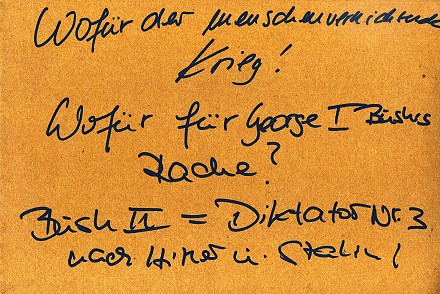 Wofür der menschenvernichtende
Krieg!
Wofür für George I Bushs
Rache?
Bush II = Diktator Nr. 3
nach Hitler u. Stalin!